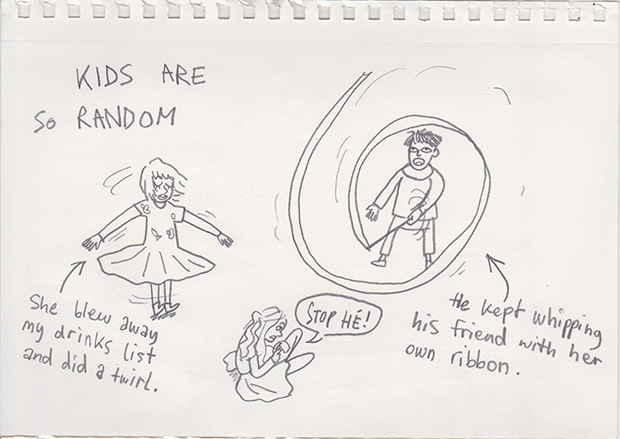 KIDS ARE
SO RANDOM
She blew away
my drinks list
and did a twirl.
STOP HÉ!
He kept whipping
his friend with her
own ribbon.